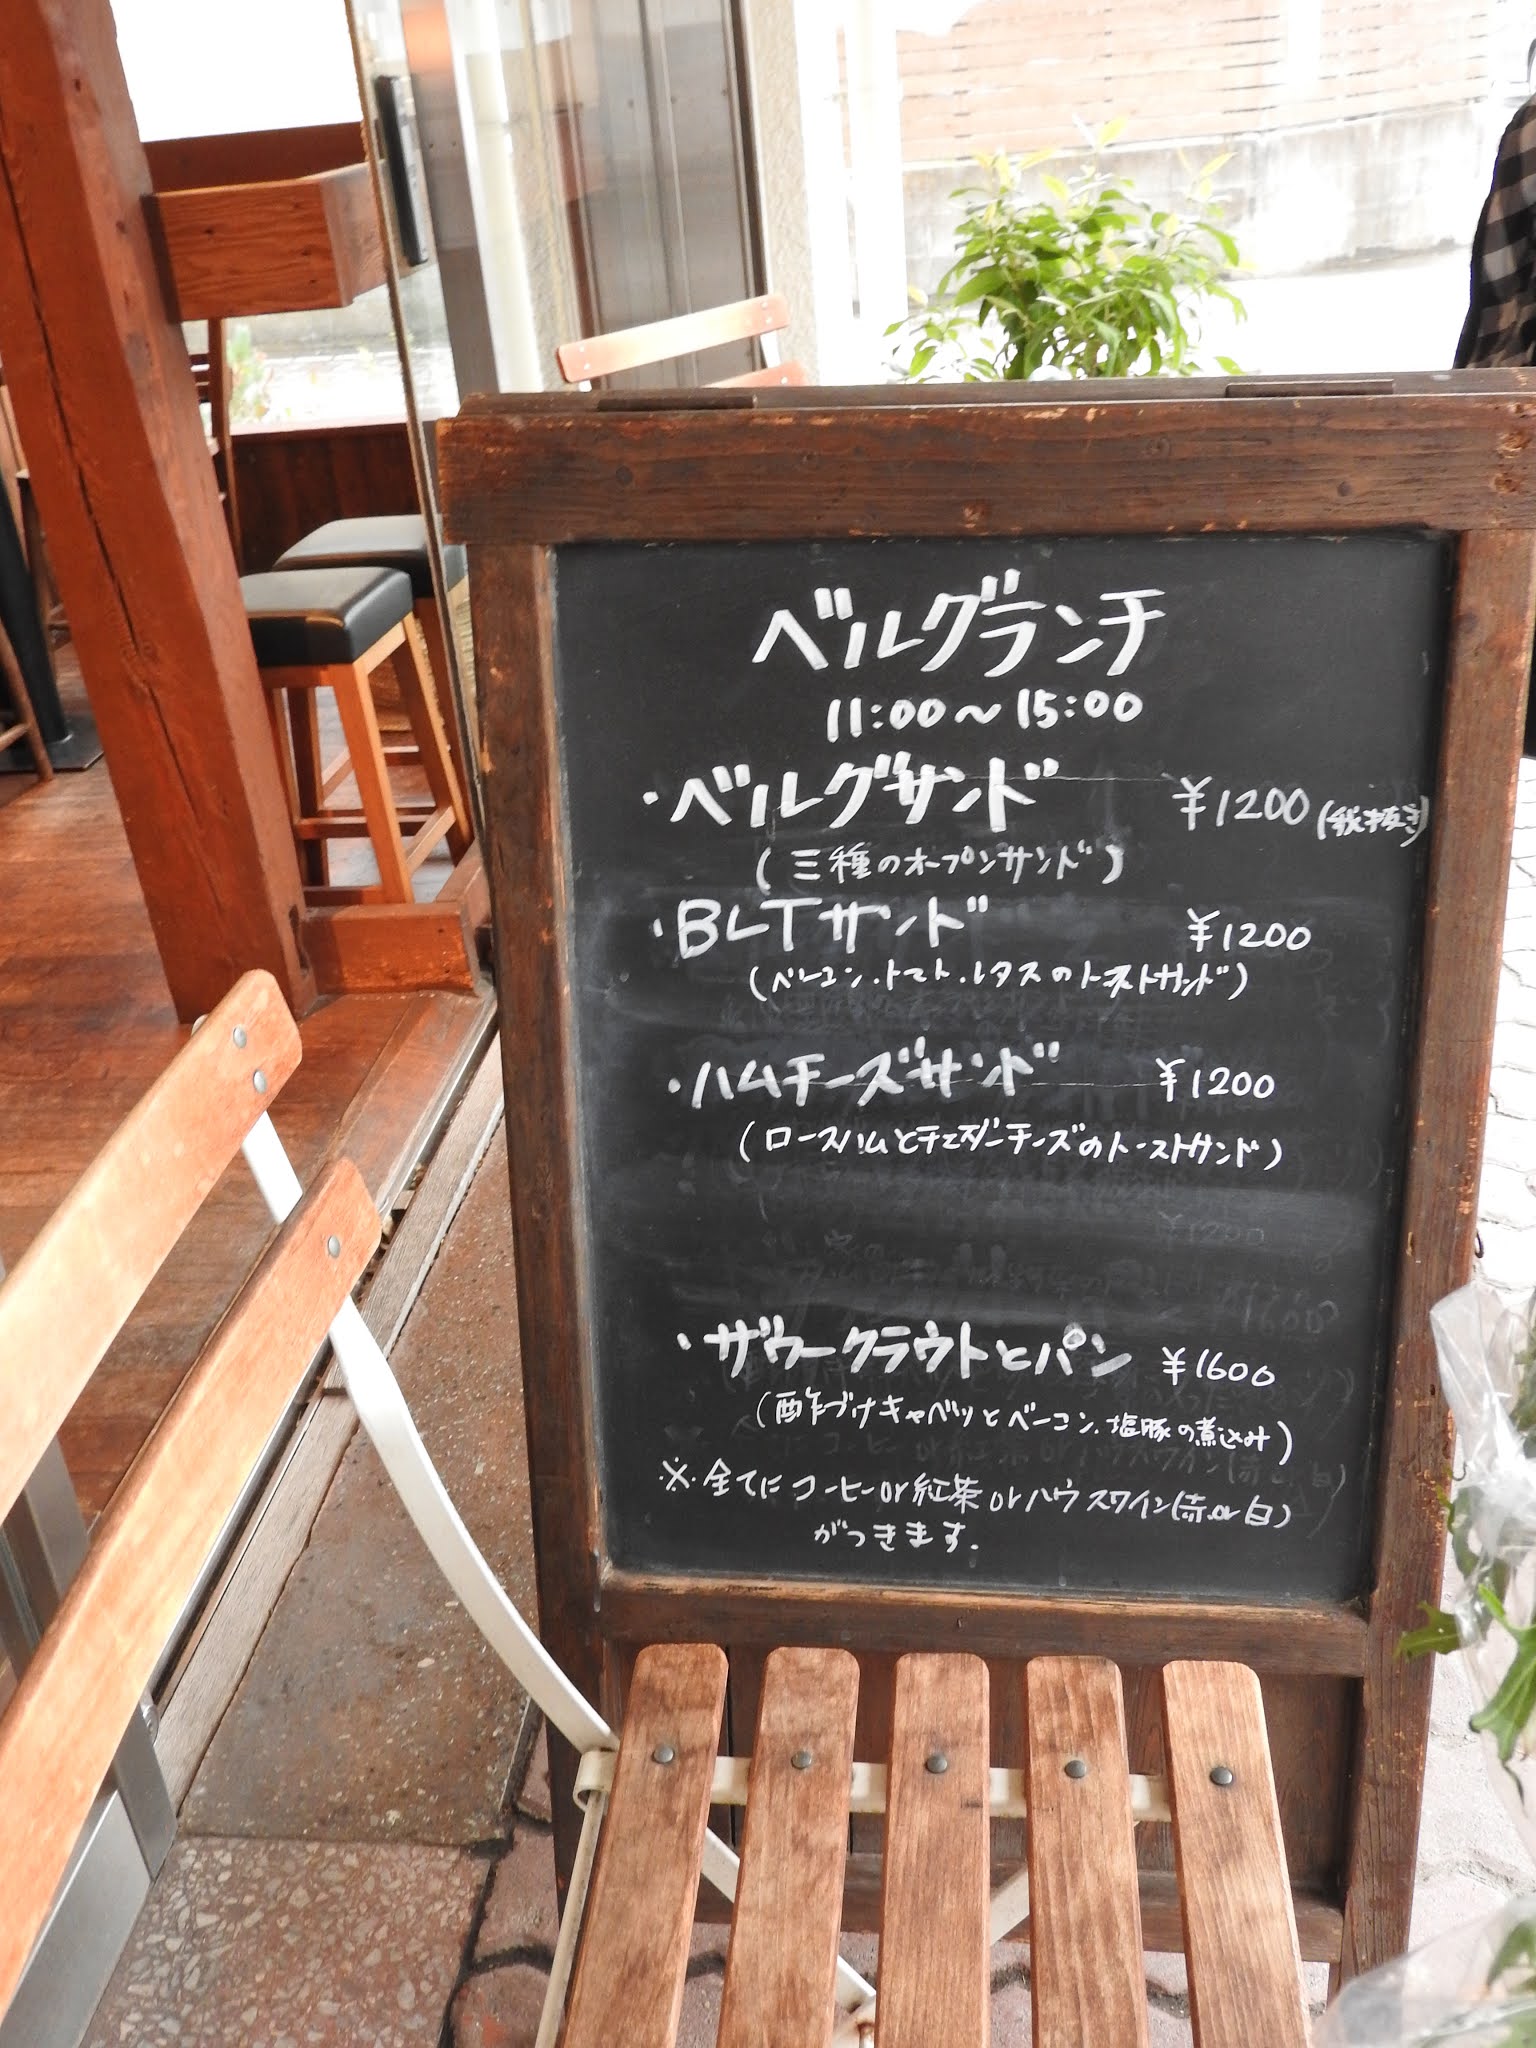 ベルグランチ
11:00～15:00
・ベルグサンド ¥1200(税抜き)
(三種のオープンサンド)
・BLTサンド ¥1200
(ベーコン.トマト.レタスのトーストサンド)
・ハムチーズサンド ¥1200
(ロースハムとチェダーチーズのトーストサンド)
・ザワークラウトとパン ¥1600
(酢づけキャベツとベーコン.塩豚の煮込み)
※.全てにコーヒーor紅茶orハウスワイン(赤.or白)
がつきます.